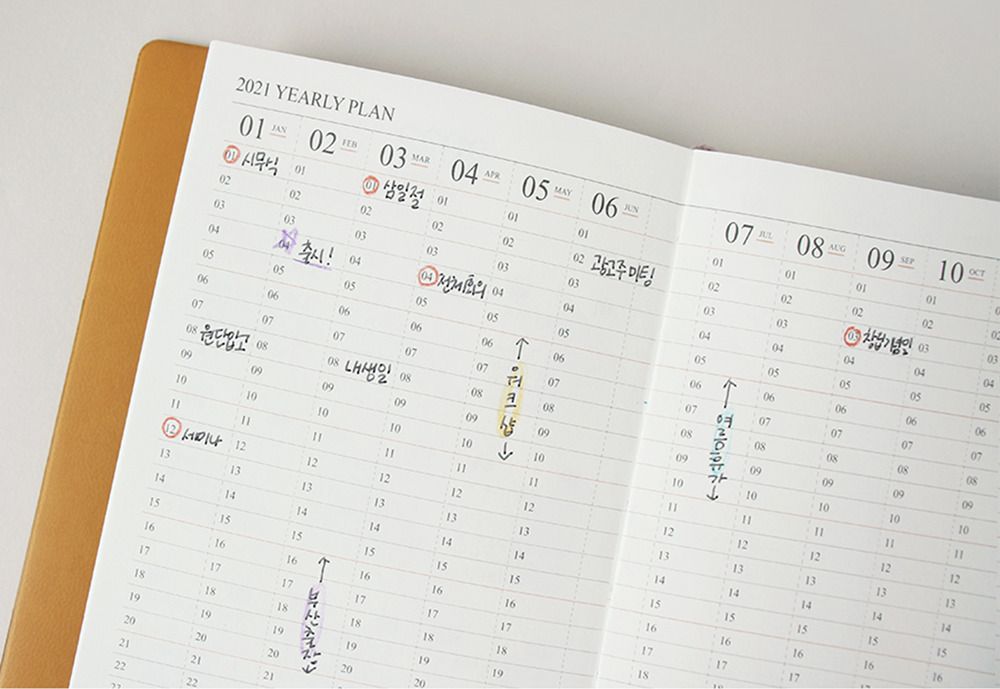 2021 YEARLY PLAN
01 JAN
01 시무식
02
03
04
05
06
07
08 원단입고
09
10
11
12 세미나
13
14
15
16
17
18
19
20
21
22
02 FEB
01
02
03
04 출시!
05
06
07
08
09
10
11
12
13
14
15
16
17
18
19
20
21
03 MAR
01 삼일절
02
03
04
05
06
07
08 내생일
09
10
11
12
13
14
15
16
17
18
19
20
21
부산출장
04 APR
01
02
03
04 전체회의
05
06
07
08
09
10
11
12
13
14
15
16
17
18
19
20
05 MAY
01
02
03
04
05
06
07
08
09
10
11
12
13
14
15
16
17
18
19
워크샵
06 JUN
01
02 광고주미팅
03
04
05
06
07
08
09
10
11
12
13
14
15
16
17
18
19
07 JUL
01
02
03
04
05
06
07
08
09
10
11
12
13
14
15
16
17
18
여름휴가
08 AUG
01
02
03
04
05
06
07
08
09
10
11
12
13
14
15
16
17
09 SEP
01
02
03 창립기념일
04
05
06
07
08
09
10
11
12
13
14
15
16
17
10 OCT
01
02
03
04
05
06
07
08
09
10
11
12
13
14
15
16
17